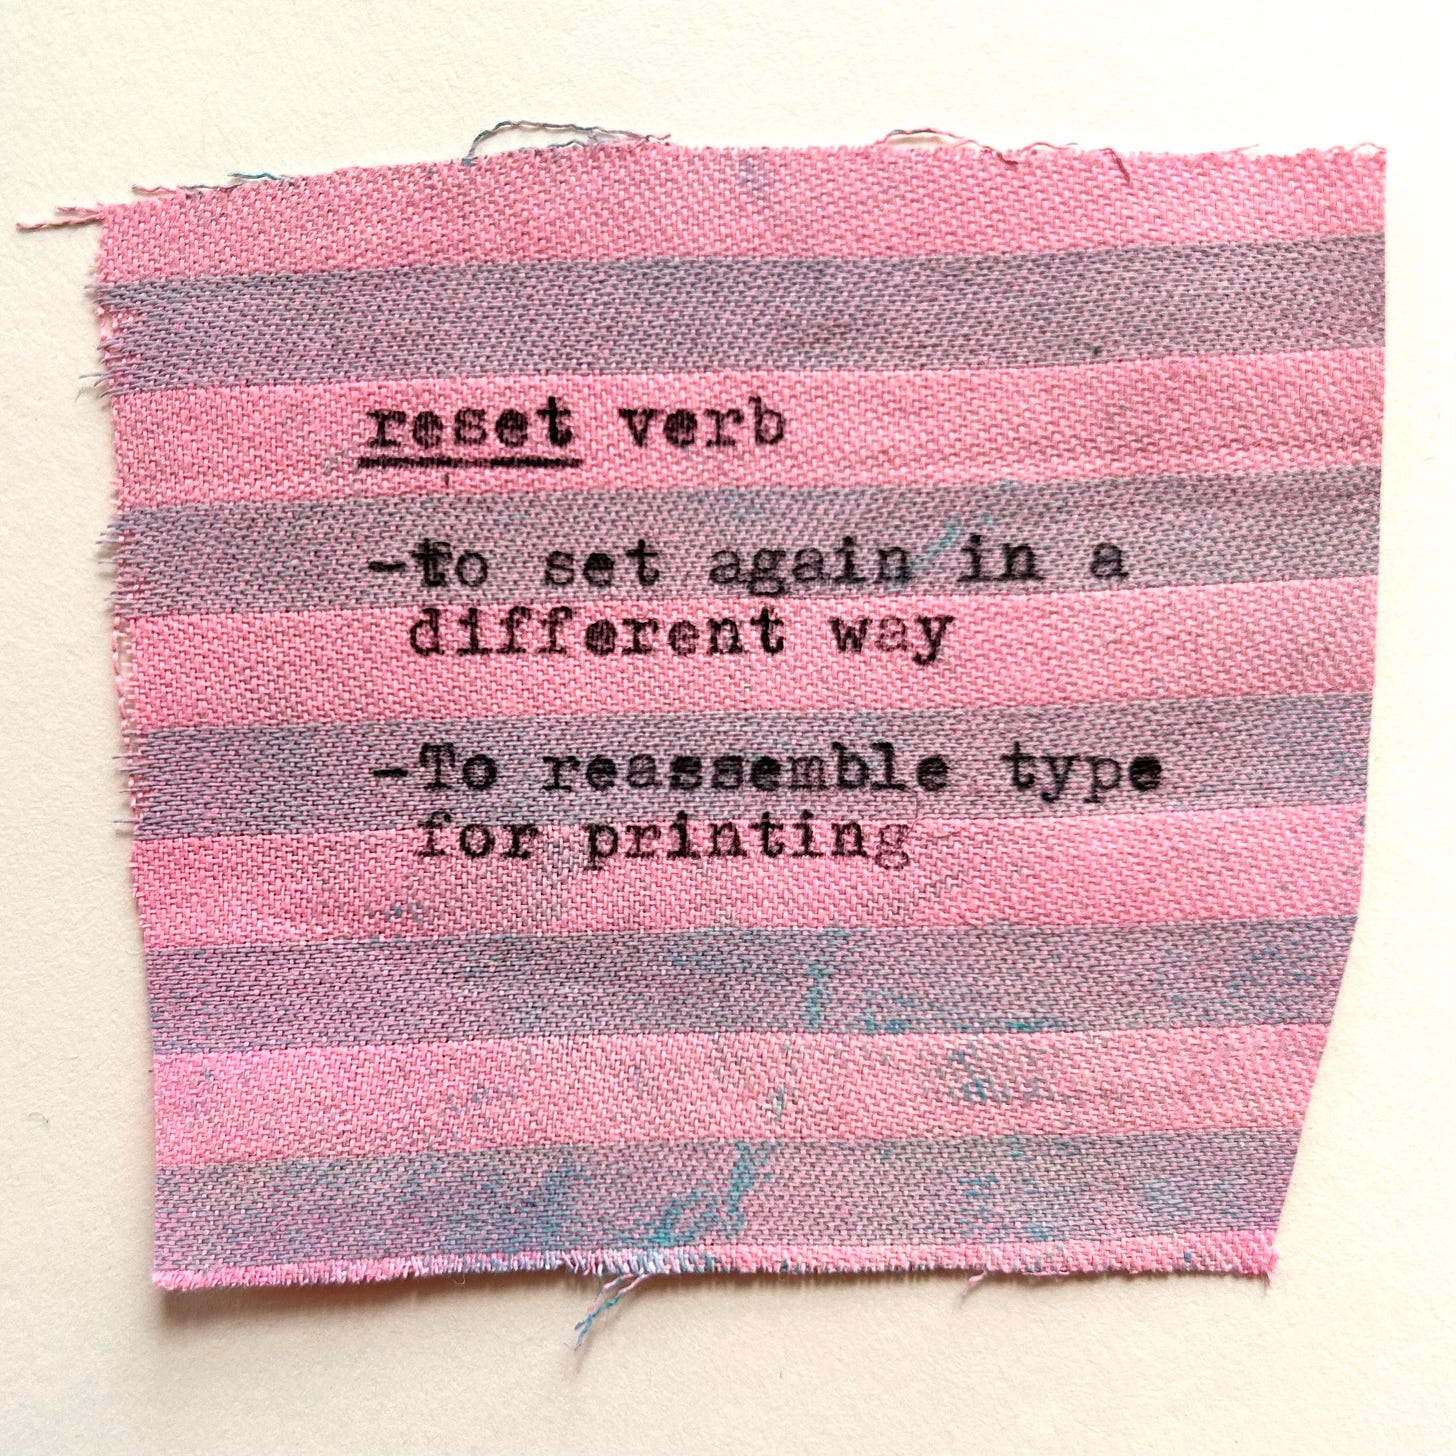 reset verb
-to set again in a
different way
-To reassemble type
for printing